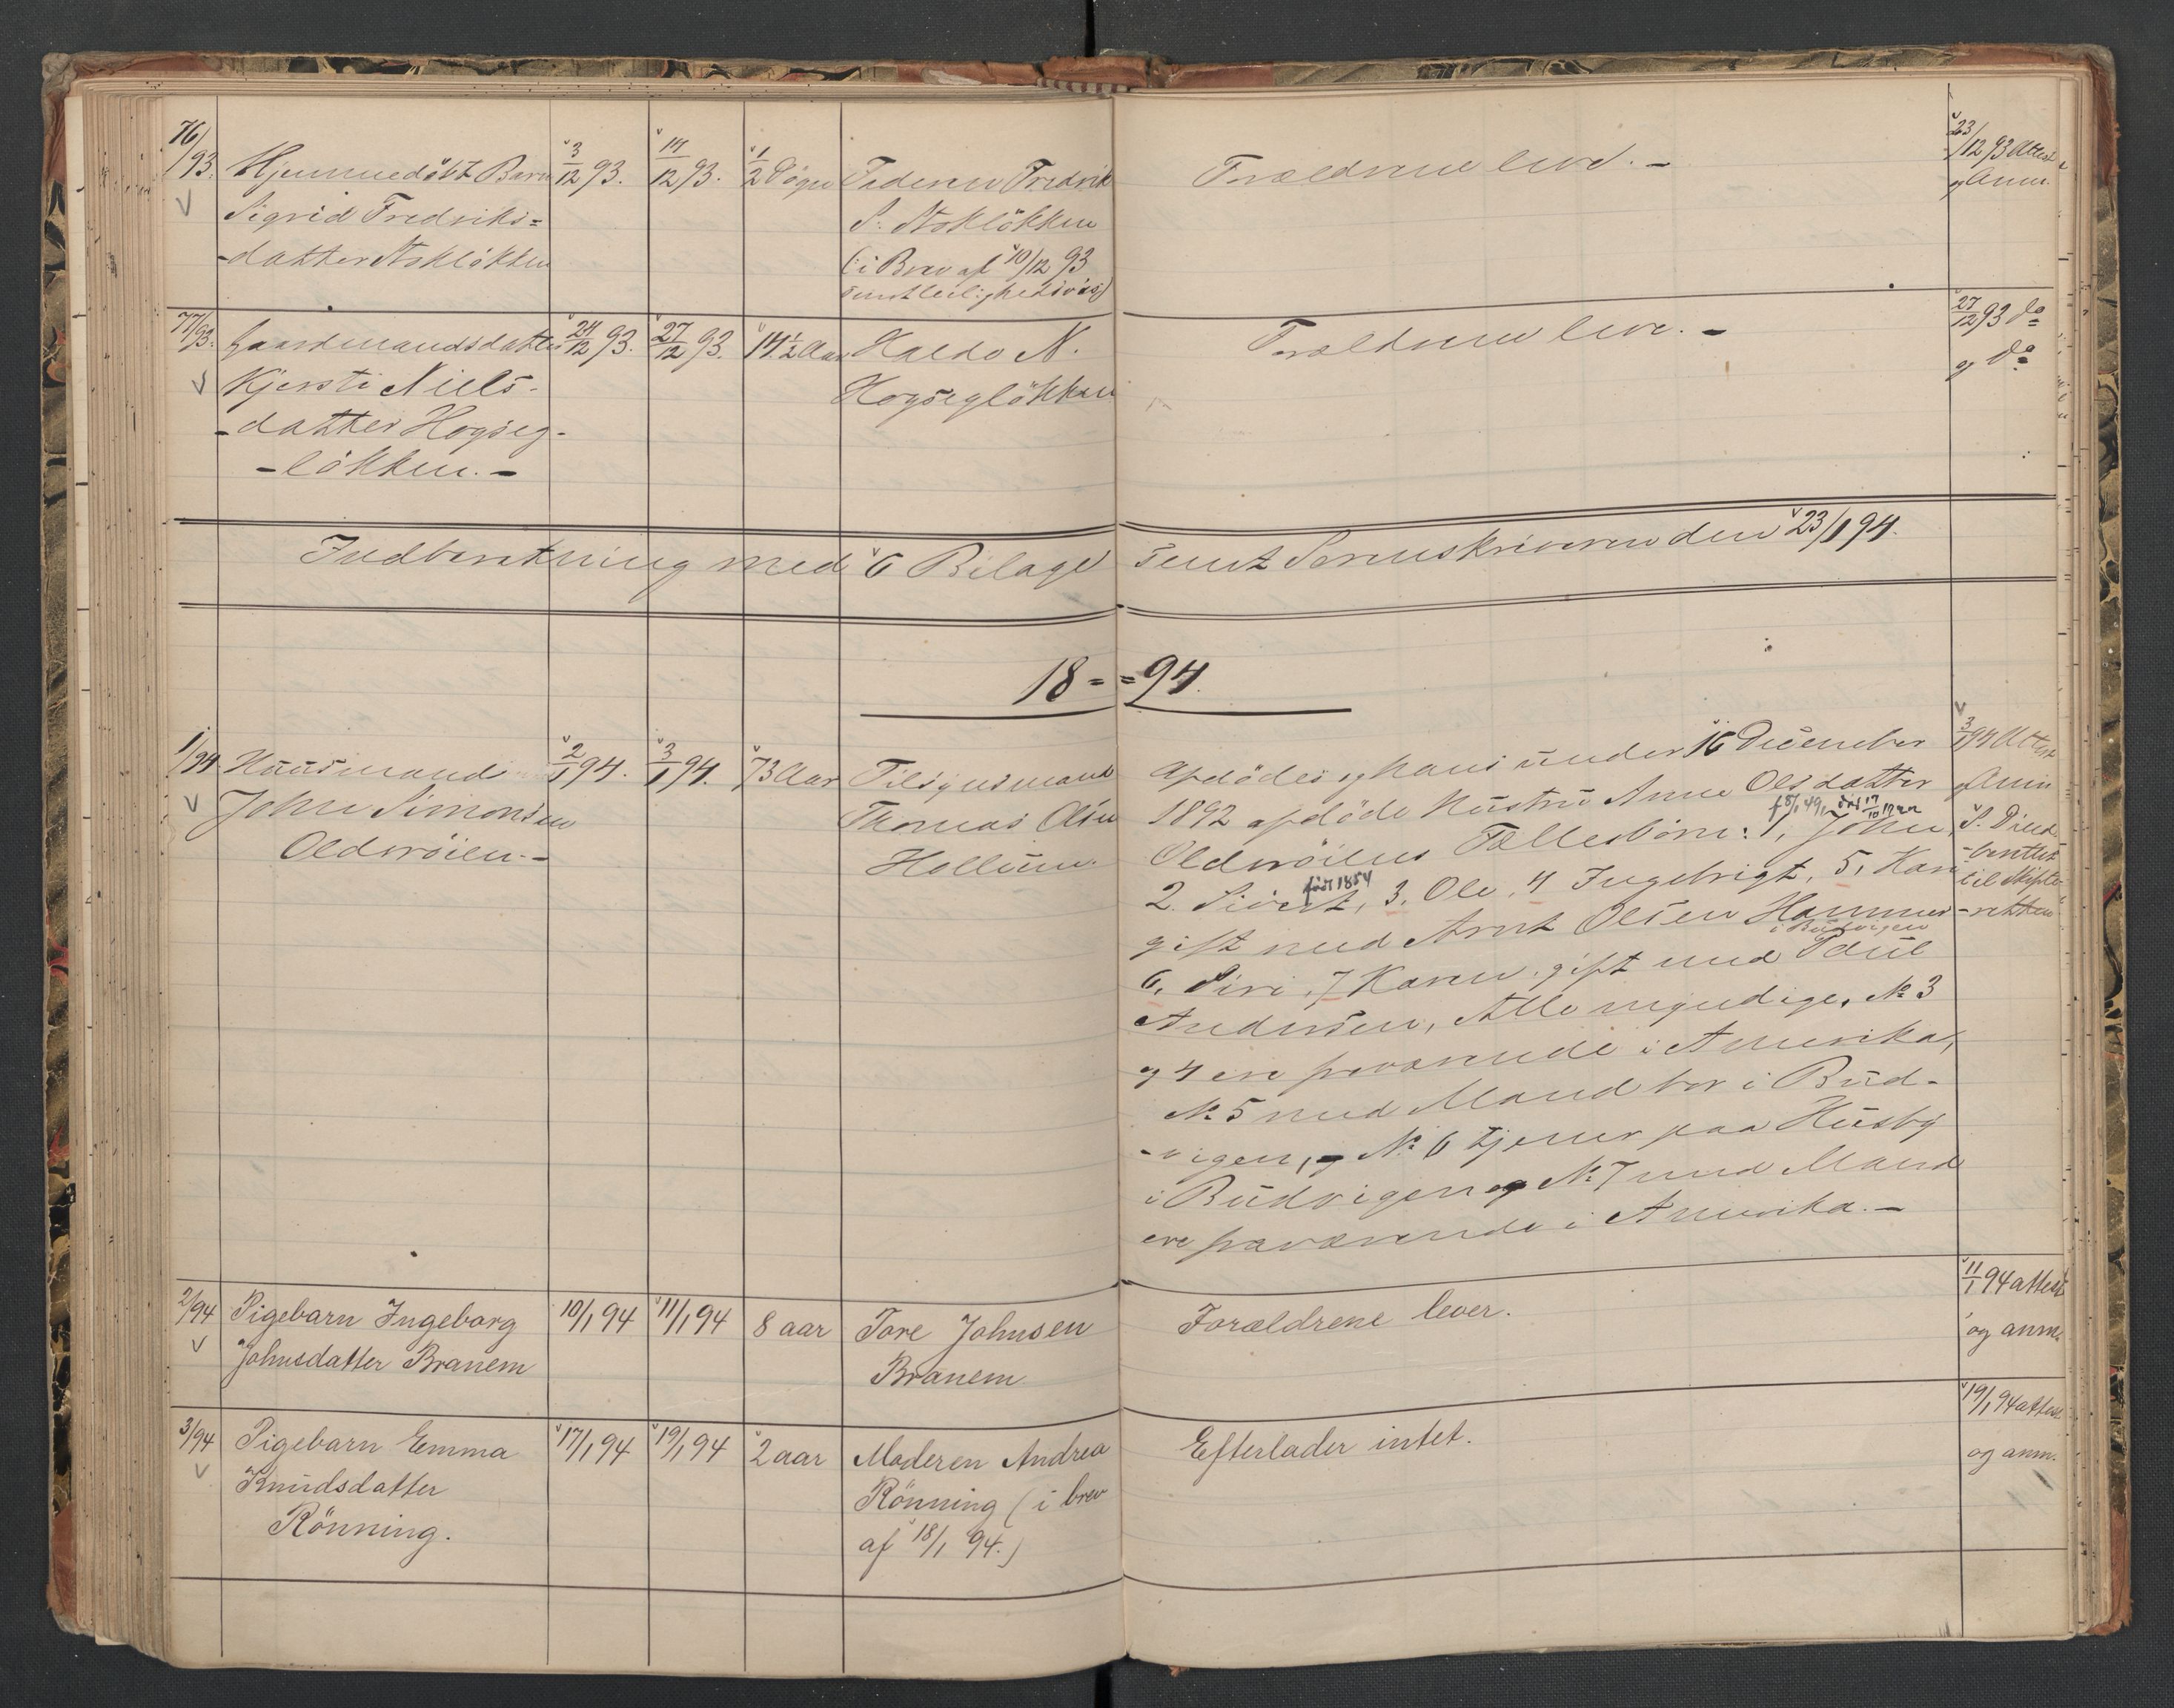 76/93. Hjemmedøbt Barn 3/12 93. 14/12 93. 1/2 Døgn Faderen Fredrik Forældrene leve. - 23/12 93 Attest
Sigrid Fredriks= S. Stokløkken og Anm.
-datter Stokløkken (i Brev af 10/12 93
sendt leilighedsvis)
77/93. Gaardmandsdatter 24/12 93. 27/12 93. 14 1/2 Aar Haldo N. Forældrene leve. - 27/12 93 do
Kjersti Niels- Hogsegløkken og do
-datter Hogseg-
-løkken. -
Indberetning med 6 Bilage sendt Sorenskriveren den 23/1 94.
18 = = 94.
1/94 Huusmand 2/1 94. 3/1 94. 73 Aar Tilsynsmand
John Simonsen Thomas Olsen
Oldervøien. - Hollum.
Afdødes og hans under 16 December
1892 afdøde Hustru Anne Olsdatter
Oldervøiens Fællesbørn: 1, John,
født 1854
2. Sivert, 3. Ole, 4 Ingebrigt, 5, Kari
gift med Arnt Olsen Hammer
i Budvigen
6, Siri, 7 Karen, gift med Paul
Andersen, Alle myndige, No 3
og 4 ere fraværende i Amerika,
No 5 med Mand bor i Bud-
-vigen, No 6 tjener paa Husby
i Budvigen og No 7 med Mand
ere fraværende i Amerika. -
3/1 94 Attest
og Anm
til Skifte-
-retten
2/94 Pigebarn Ingeborg 10/1 94 11/1 94 8 aar Tore Johnsen Forældrene lever. 11/1 94 attest
Johnsdatter Branem Branem og anm.
3/94 Pigebarn Emma 17/1 94 19/1 94 2 aar Moderen Andrea Efterlader intet. 19/1 94 attest
Knudsdatter Rönning (i brev og anm.
Rönning. af 18/1 94.)